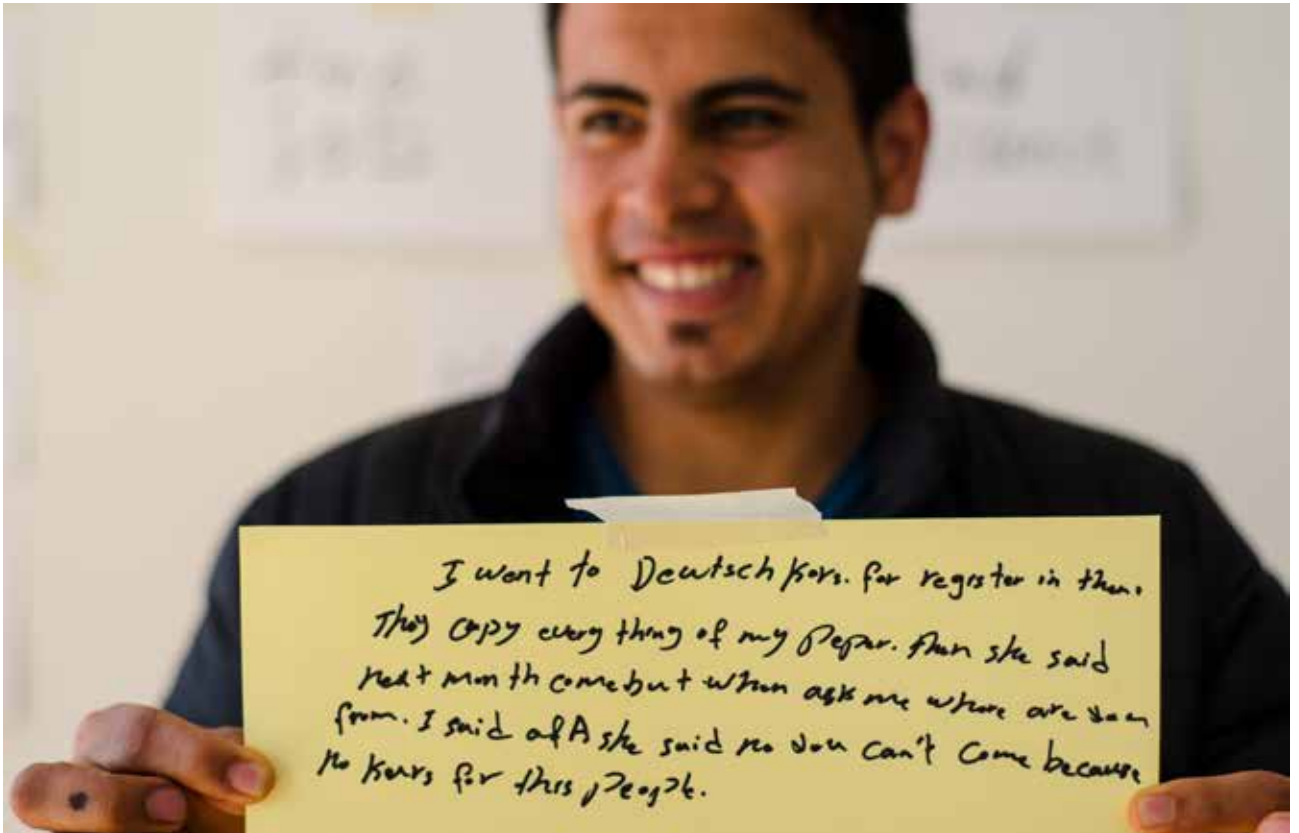 I went to Deutsch Kors. for register in them.
They copy every thing of my Peper. then she said
next month come but when ask me where are you
from. I said afA she said no you can't come because
no Kours for this people.